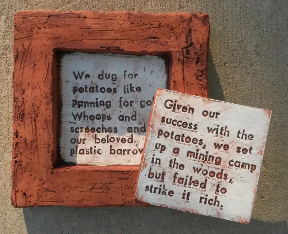 We dug for
potatoes like
panning for go
Whoops and
screeches and
our beloved
plastic barrow
Given our
success with the
potatoes, we set
up a mining camp
in the woods,
but failed to
strike it rich.